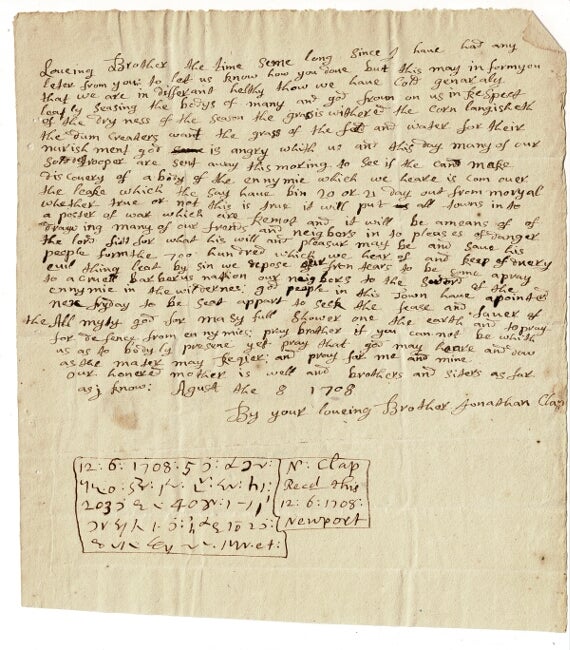 Loveing Brother the time seme long since I have had any
leter from you: to let us know how you doue but this may in form you
that we are in differant helthy thow we have Cold genaraly
leatly seasing the bodys of many and god frown on us in Respect
of the dry ness of the season the grasis withered the Corn langisheth
the dum Creaters want the grass of the and water for their
nurish ment god is angry which us and this day many of our
trooper are sent away this moring to see if the can make
discovery of a body of the ennymie which we heare is com over
the leake which the say have bin 20 or 21 day out from moryal
whether true or not this is true it will put all towns in to
a poster of war which are Remot and it will be ameans of
drawing many of our frends and neighbors in to pleases of danger
the lord fitt for what his will and pleasur may be and save his
people from the 700 hundred which we hear of and keep of every
evil thing leat by sin we expose our fren tears to be some a pray
to a Cruell barberus nation our neighbors to the of the
ennymie in the wildernes: god people in this town have apointed
nex fryday to be seat appart to seek the fease and faver of
the All myty god for masy full shower one the earth and to pray
for defence from ennymies; pray brother if you can not be which
us as to bodyly presene yet pray that god may heare and
as the mater may Requier: and pray for me and mine
our honered mother is well and brothers and sisters as far
as j know: Agust the 8 1708
By your loveing Brother Jonathan Clap
12: 6: 1708:
N: Clap
Recd this
12: 6: 1708:
Newport